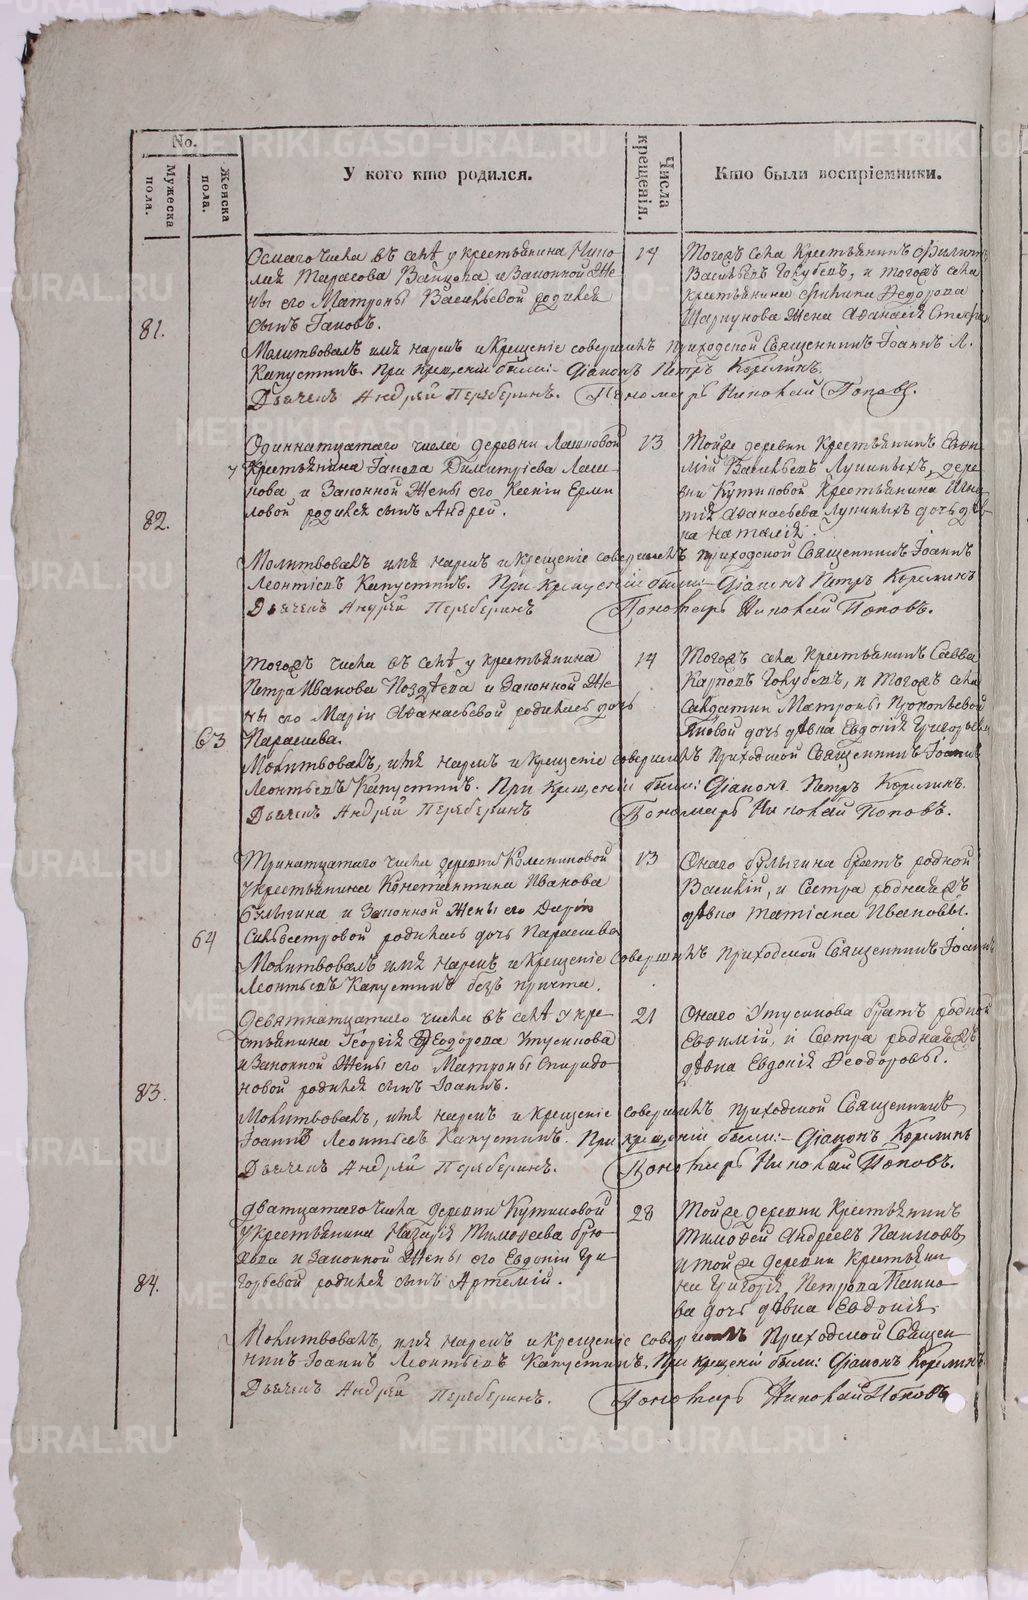 No.
Мужеска пола.
Женска пола.
У кого кто родился.
Числа крещенія.
Кто были воспріемники.
81.
Осмаго числа въ селѣ у крестьянина Нико-
лая Тарасова и законной же-
ны его Матроны Васильевой родился
сынъ Іаковъ.
14
Тогожъ села крестьянинъ Филиппъ
Васильевъ Голубевъ, и тогожъ села
крестьянина Филипа Ѳедорова
Шаркунова жена
Молитвовалъ имя нарекъ и крещеніе совершилъ приходской Священникъ Іоаннъ Л.
Капустинъ. При крещеніи были:- Діаконъ Петръ Корелинъ.
Дьячекъ Андрей Переберинъ. Пономарь Николай Поповъ.
82.
Одиннатцатаго числа деревни Лашковой
у крестьянина Іакова Димитріева Лаш-
кова и законной жены его Ксеніи Ерми-
ловой родился сынъ Андрей.
13
Тойже деревни крестьянинъ
Васильевъ Лупиныхъ, дере-
вни Кутиковой крестьянина Игна-
тія Аѳанасьева Лупиныхъ дочь дѣв-
ка Наталія.
Молитвовалъ имя нарекъ и крещеніе совершилъ приходской Священникъ Іоаннъ
Леонтіевъ Капустинъ. При крещеніи были:- Діаконъ Петръ Корелинъ
Дьячекъ Андрей Переберинъ Пономарь Николай Поповъ.
63
Тогожъ числа въ селѣ у крестьянина
Петра Иванова Поздѣева и законной же-
ны его Маріи Аѳанасьевой родилась дочь
Параскева.
14
Тогожъ села крестьянинъ Савва
Карповъ Голубевъ, и тогожъ села
салдатки Матроны Прокопьевой
дочь дѣвка Евдокія Григорьева
Молитвовалъ, имя нарекъ и крещеніе совершилъ приходской Священникъ Іоаннъ
Леонтьевъ Капустинъ. При крещеніи были: Діаконъ Петръ Корелинъ.
Дьячекъ Андрей Переберинъ Пономарь Николай Поповъ.
64
Тринатцатаго числа деревни Колесниковой
у крестьянина Константина Иванова
Булыгина и законной жены его Даріи
Сильвестровой родилась дочь Параскева
13
Онаго Булыгина братъ родной
Василій, и сестра роднаяжъ
дѣвка Татіана Ивановы.
Молитвовалъ имя нарекъ и крещеніе совершилъ приходской Священникъ Іоаннъ
Леонтьевъ Капустинъ безъ причта.
83.
Девятнатцатаго числа въ селѣ у кре-
стьянина Георгія Ѳеодорова Утусикова
и законной жены его Матроны Спиридо-
новой родился сынъ Іоаннъ.
21
Онаго Утусикова братъ родной
Евѳимій, и сестра роднаяжъ
дѣвка Евдокія Ѳеодоровы.
Молитвовалъ, имя нарекъ и крещеніе совершилъ приходской Священникъ
Іоаннъ Леонтьевъ Капустинъ. При крещеніи были:- Діаконъ Корелинъ
Дьячекъ Андрей Переберинъ. Пономарь Николай Поповъ.
84.
Дватцатаго числа деревни Кутиковой
у крестьянина Назарія Тимоѳеева
и законной жены его Евдокіи Гри-
горьевой родился сынъ Артемій.
28
Тойже деревни крестьянинъ
Тимоѳей Андреевъ Панковъ
и тойже деревни крестьяни-
на Григорія Петрова Панко-
ва дочь дѣвка Евдокія
Молитвовалъ, имя нарекъ и крещеніе совершилъ приходской Священ-
никъ Іоаннъ Леонтьевъ Капустинъ, При крещеніи были: Діаконъ Корелинъ
Дьячекъ Андрей Переберинъ. Пономарь Николай Поповъ
METRIKI.GASO-URAL.RU